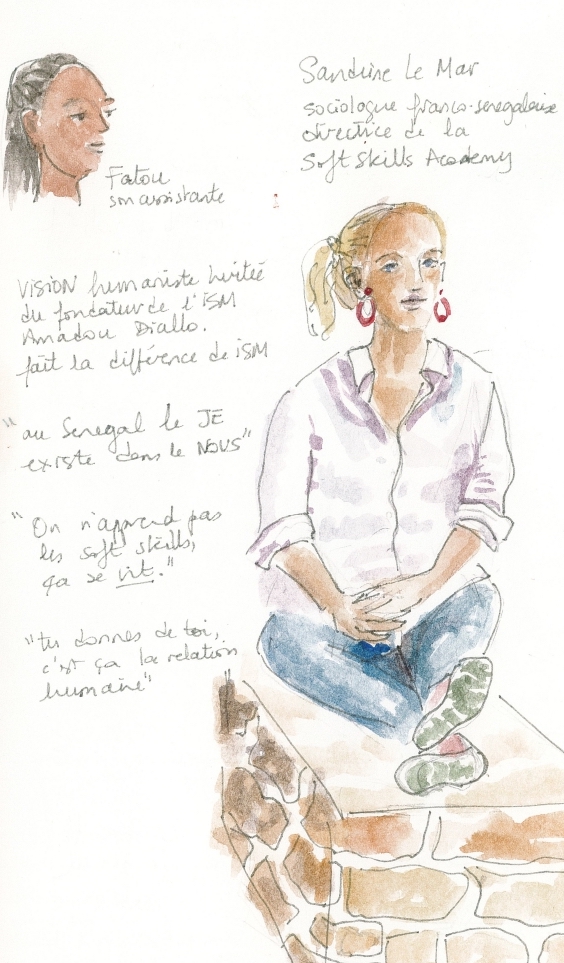 Sandrine Le Mar
sociologue franco-senegalaise
directrice de la
Soft Skills Academy
Fatou
son assistante
VISION humaniste héritée
du fondateur de l'ISM
Amadou Diallo.
fait la différence de iSM
"au Senegal le JE
existe dans le NOUS"
"On n'apprend pas
les soft skills,
ça se vit."
"tu donnes de toi,
c'est ça la relation
humaine"